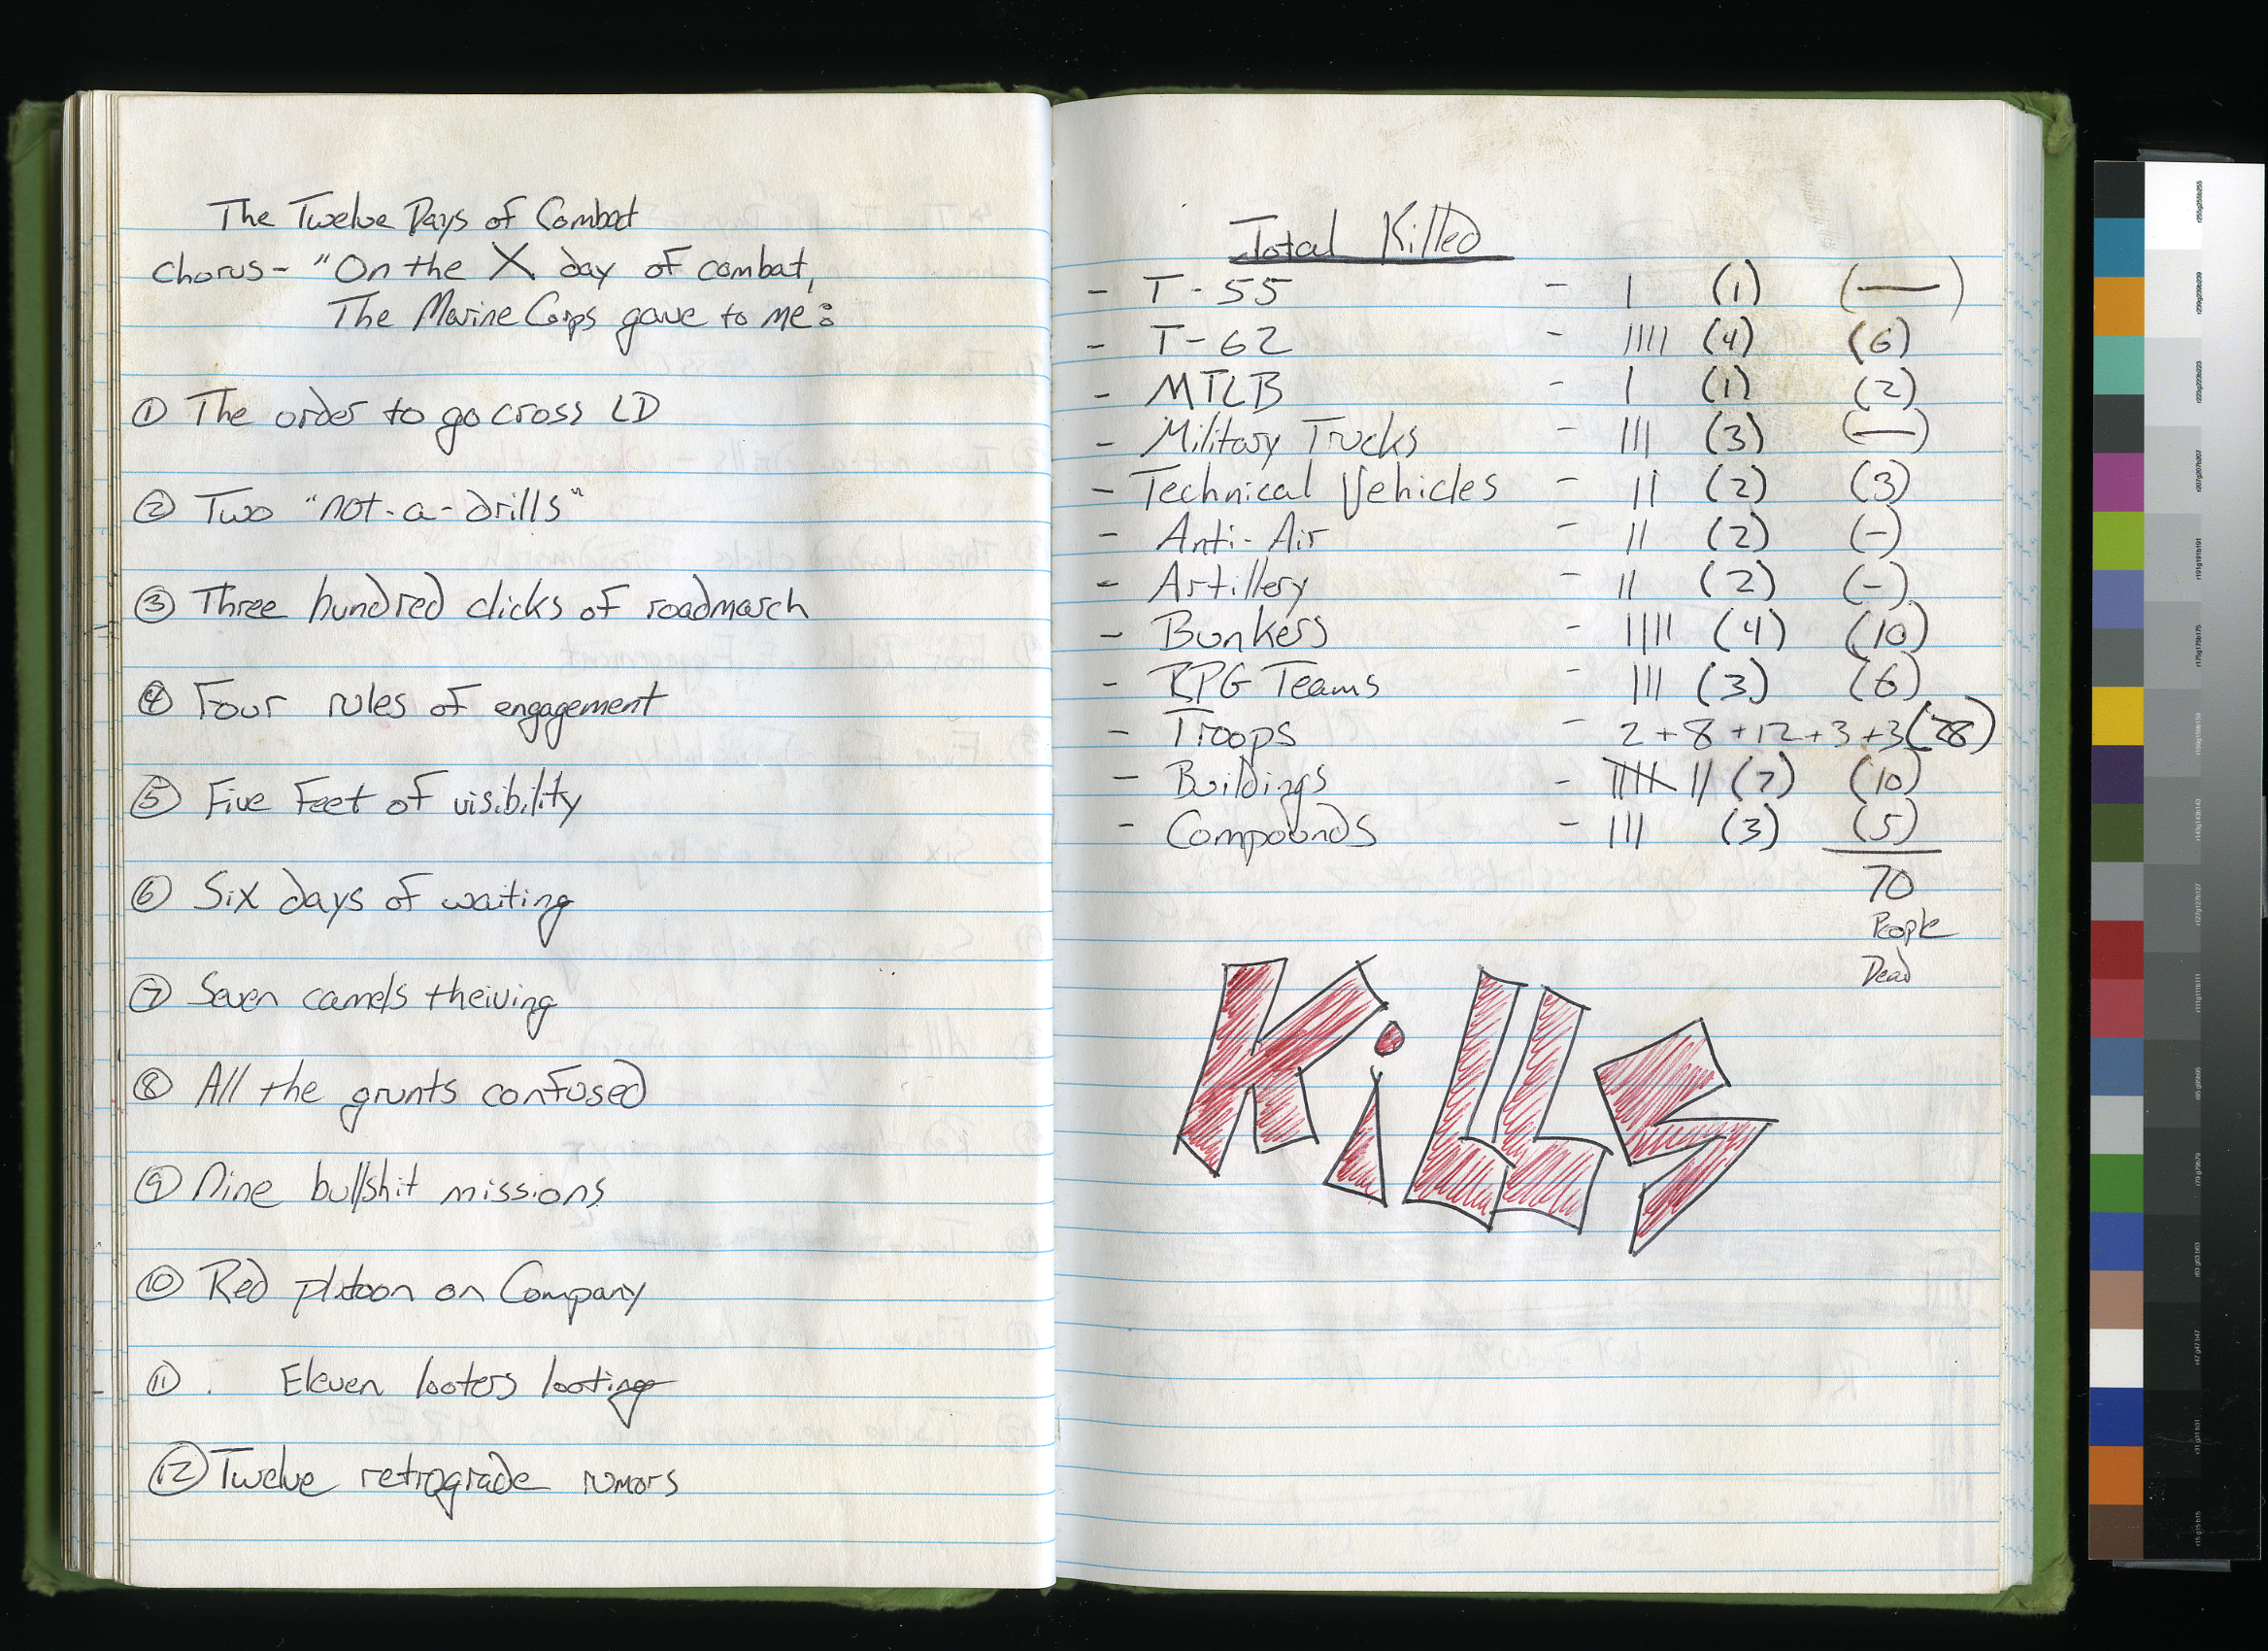 The Twelve Days of Combat
Chorus- "On the X day of combat,
The Marine Corps gave to me:
① The order to go cross LD
② Two "not-a-drills"
③ Three hundred clicks of roadmarch
④ Four rules of engagement
⑤ Five feet of visibility
⑥ Six days of waiting
⑦ Seven camels theiving
⑧ All the grunts confused
⑨ Nine bullshit missions
⑩ Red platoon on Company
⑪ . Eleven looters looting
⑫ Twelve retrograde rumors
Total Killed
- T-55 - | (1) (—)
- T-62 - |||| (4) (6)
- MTLB - | (1) (2)
- Military Trucks - ||| (3) (—)
- Technical Vehicles - || (2) (3)
- Anti-Air - || (2) (-)
- Artillery - || (2) (-)
- Bunkers - |||| (4) (10)
- RPG Teams - ||| (3) (6)
- Troops - 2+8+12+3+3 (28)
- Buildings - |||| || (7) (10)
- Compounds - ||| (3) (5)
70
People
Dead
Kills